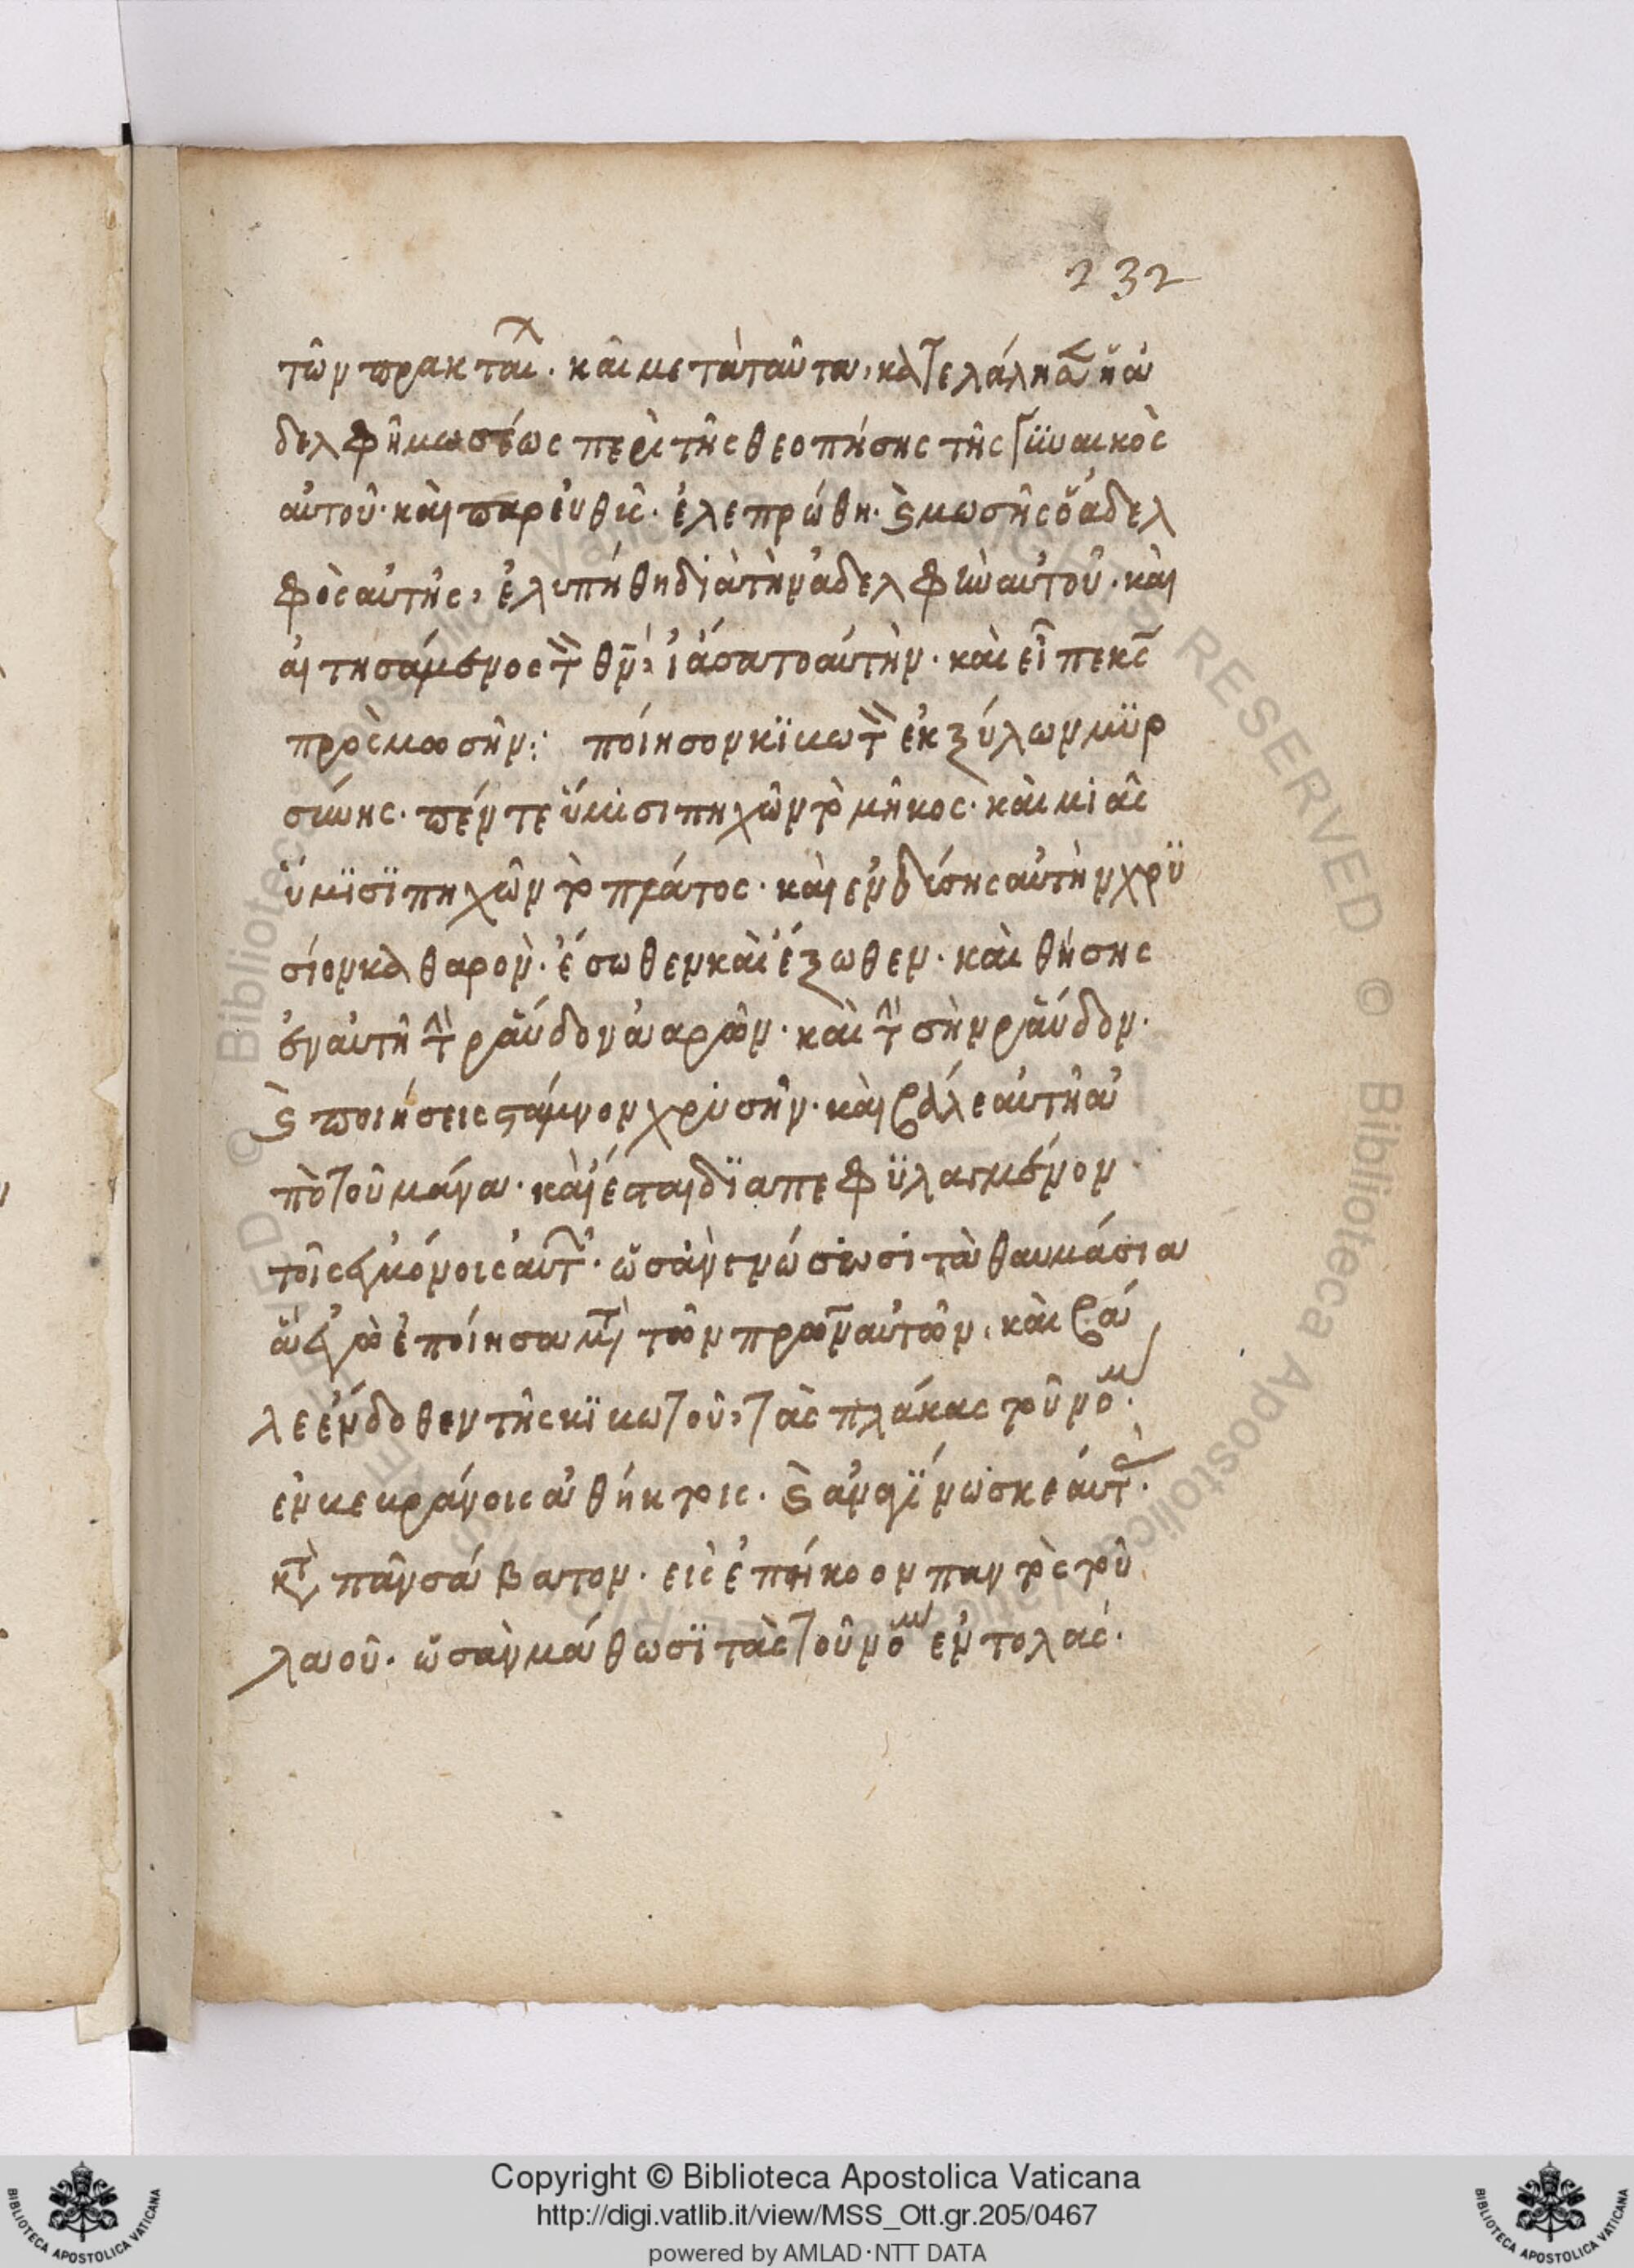 232
τῶν πρακταί. καὶ μετὰ ταῦτα, κατελάλησαν ἡ ἀ
δελφῆ μωσέως περὶ τῆς θεοπήσης τῆς γϋυαικὸς
αὐτοῦ. καὶ παρευθῒ. ἐλεπρώθη. ϛ μωσῆς ὅ ἀδελ
φὸς αὐτῆς, ἐλυπήθη διὰ τὴν ἀδελφὴν αὐτοῦ. καὶ
αἰτησάμενος τὸν θν, ἰάσατο αὐτὴν. καὶ εἶπε κς
πρὸς μωσῆν: ποίησον κϊκωτὸν ἐκ ξύλων μϋρ
σίωης. πέντε ὕμισι πηχῶν τὸ μῆκος. καὶ μιᾶς
ὕμϊσϊ πηχῶν τὸ πλάτος. καὶ ενδίσης αὐτὴν χρϋ
σίον καθαρον. ἔσωθεν καὶ ἔξωθεν. καὶ θήσης
ἐν αὐτῆ τὴν ράυδον ἀαρῶν. καὶ τὴν σὴν ράυδον.
ϛ ποιήσεις στάμνον χρϋσῆν. καὶ βάλε αὐτῆ ἀ
πὸ τοῦ μάνα. καὶ ἔσται δϊαπεφϋλαγμένον
τοῖς ἐγκόνοις αὐτ. ὥσὰν γνώσωσὶ τὰ θαυμάσια
ἅ ἐγὼ ἐποίησα μετὰ τῶν πρων αὐτῶν, καὶ βά
λε ἔνδοθεν τῆς κϊκωτοῦ, τὰς πλάκας τοῦ νόμ.
ἐν κεκράνοις ἀθήκτοις. ϛ ἀναγϊνώσκε αὐτ.
κατὰ πᾶν σάβατον. εἰς ἐπήκοον παντὸς τοῦ
λαοῦ. ὥσὰν μάθωσϊ τὰς τοῦ νόμ ἐντολάς.
Copyright © Biblioteca Apostolica Vaticana
http://digi.vatlib.it/view/MSS_Ott.gr.205/0467
powered by AMLAD·NTT DATA